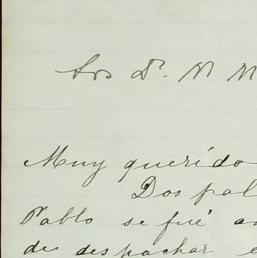 Sr. D. N N
Muy querido
Dos pal
Pablo se fué a
de despachar e